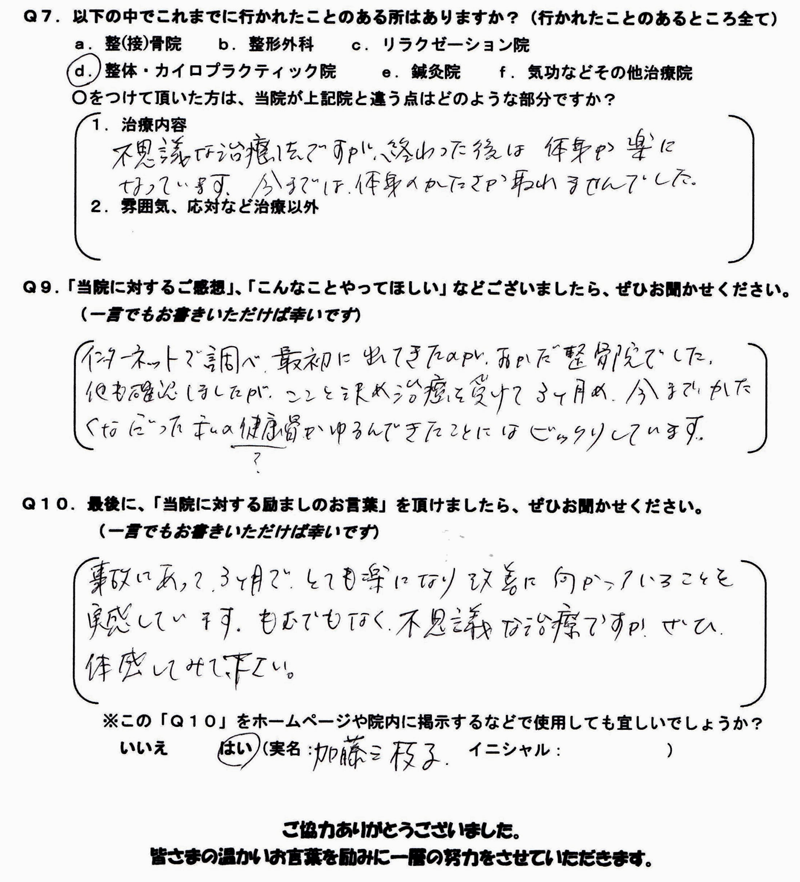 Q7．以下の中でこれまでに行かれたことのある所はありますか？（行かれたことのあるところ全て）
a．整(接)骨院　b．整形外科　c．リラクゼーション院
d．整体・カイロプラクティック院　e．鍼灸院　f．気功などその他治療院
〇をつけて頂いた方は、当院が上記院と違う点はどのような部分ですか？
1．治療内容
不思議な治療法ですが、終わった後は 体身が楽に
なっています。今までは、体身のかたさが取れませんでした。
2．雰囲気、応対など治療以外
Q9．「当院に対するご感想」、「こんなことやってほしい」などございましたら、ぜひお聞かせください。
（一言でもお書きいただけば幸いです）
インターネットで調べ、最初に出てきたのが、おかだ整骨院でした。
他も確認しましたが、ここと決め治療を受けて3ヶ月め、今まで、かた
くなだった私の健康骨がゆるんできたことにはビックリしています。
？
Q10．最後に、「当院に対する励ましのお言葉」を頂けましたら、ぜひお聞かせください。
（一言でもお書きいただけば幸いです）
事故にあって、3ヶ月で、とても楽になり改善に向かっていることを
実感しています。もむでもなく、不思議な治療ですが、ぜひ、
体感してみて下さい。
※この「Q10」をホームページや院内に掲示するなどで使用しても宜しいでしょうか？
いいえ　はい（実名：加藤三枝子．　イニシャル：　）
ご協力ありがとうございました。
皆さまの温かいお言葉を励みに一層の努力をさせていただきます。